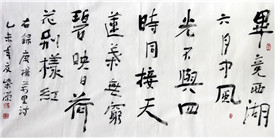 畢竟西湖
六月中風
光不與四
時同接天
蓮葉無窮
碧映日荷
花別樣紅
右錄楊万里詩
乙未年夏